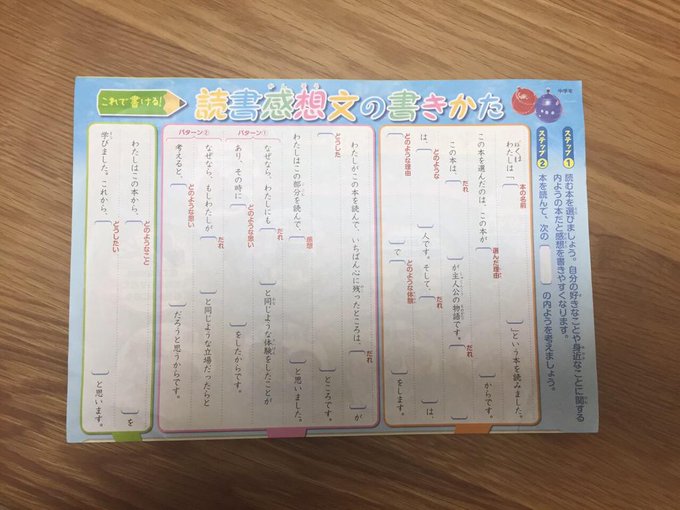 これで書ける!
読書感想文の書きかた
中学年
ステップ1 読む本を選びましょう。自分の好きなことや身近なことに関する
内ようの本だと感想を書きやすくなります。
ステップ2 本を読んで、次の の内ようを考えましょう。
ぼくは
わたしは「 」という本を読みました。
本の名前
この本を選んだのは、この本が( )からです。
選んだ理由
この本は、( )が主人公の物語です。( )
だれ
は、( )人です。そして、( )は、
どのような
だれ
( )で( )をします。
どのような理由
どのような体験
わたしがこの本を読んで、いちばん心に残ったところは、( )が
だれ
( )ところです。
どうした
わたしはこの部分を読んで、( )と思いました。
感想
パターン①
なぜなら、わたしにも( )と同じような体験をしたことが
だれ
あり、その時に( )をしたからです。
どのような思い
パターン②
なぜなら、もしわたしが( )と同じような立場だったらと
だれ
考えると、( )だろうと思うからです。
どのような思い
わたしはこの本から、( )を
どのようなこと
学びました。これから、( )と思います。
どうしたい